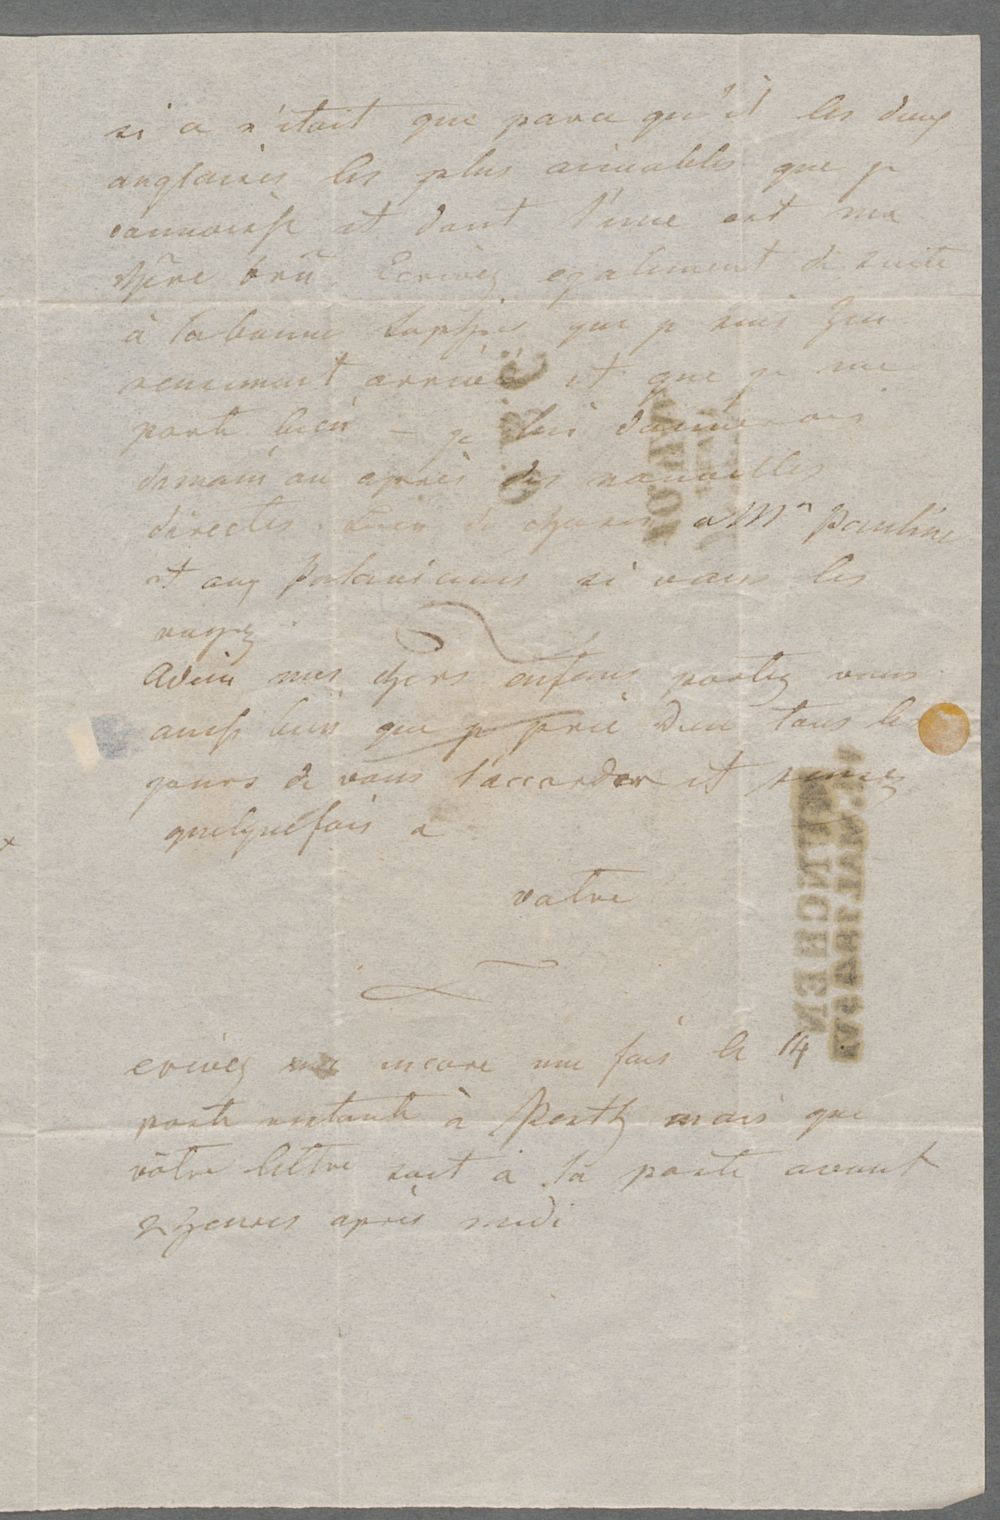 si ce n'était que parce qu'il les deux
anglaises les plus aimables que je
connaisse et dont l'une est ma
chère brû. Ecrivez egalement de suite
à la bonne Sophie que je suis heu
reusement arrivée et que je me
porte bien — je lui donnerais
demain ou après des nouvelles
directes. de choses a Mn Pauline
et aux si vous les
voyez.
Adieu mes chers enfans portez vous
aussi bien que je prie Dieu tous les
jours de vous l'accorder et pensez
quelquefois a
votre
ecrivez encore une fois le 14
poste restante à Pesth mais que
vôtre lettre soit à la poste avant
2 heures après midi
MÜNCHEN